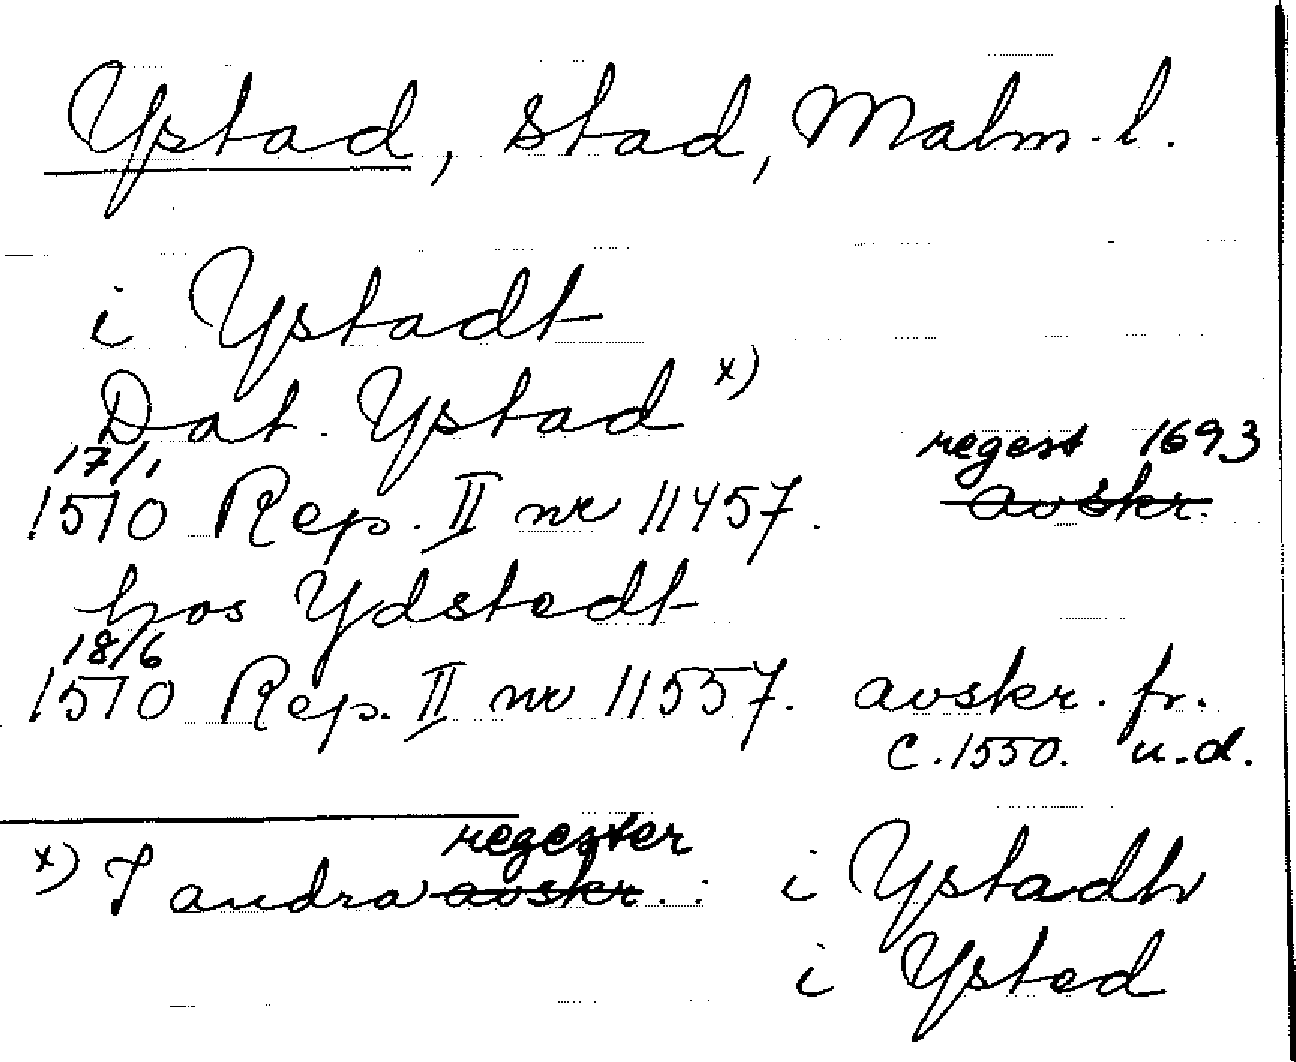 Ystad, stad, Malm. l.
i Ystadt
Dat. Ystad x)
17/1 regest 1693
1510 Rep. II nr 11457. avskr.
hos Ydstedt
18/6
1510 Rep. II nr 11557. avskr. fr.
c. 1550. u.d.
regester
x) I andra avskr. : i Ystadh
i Ysted